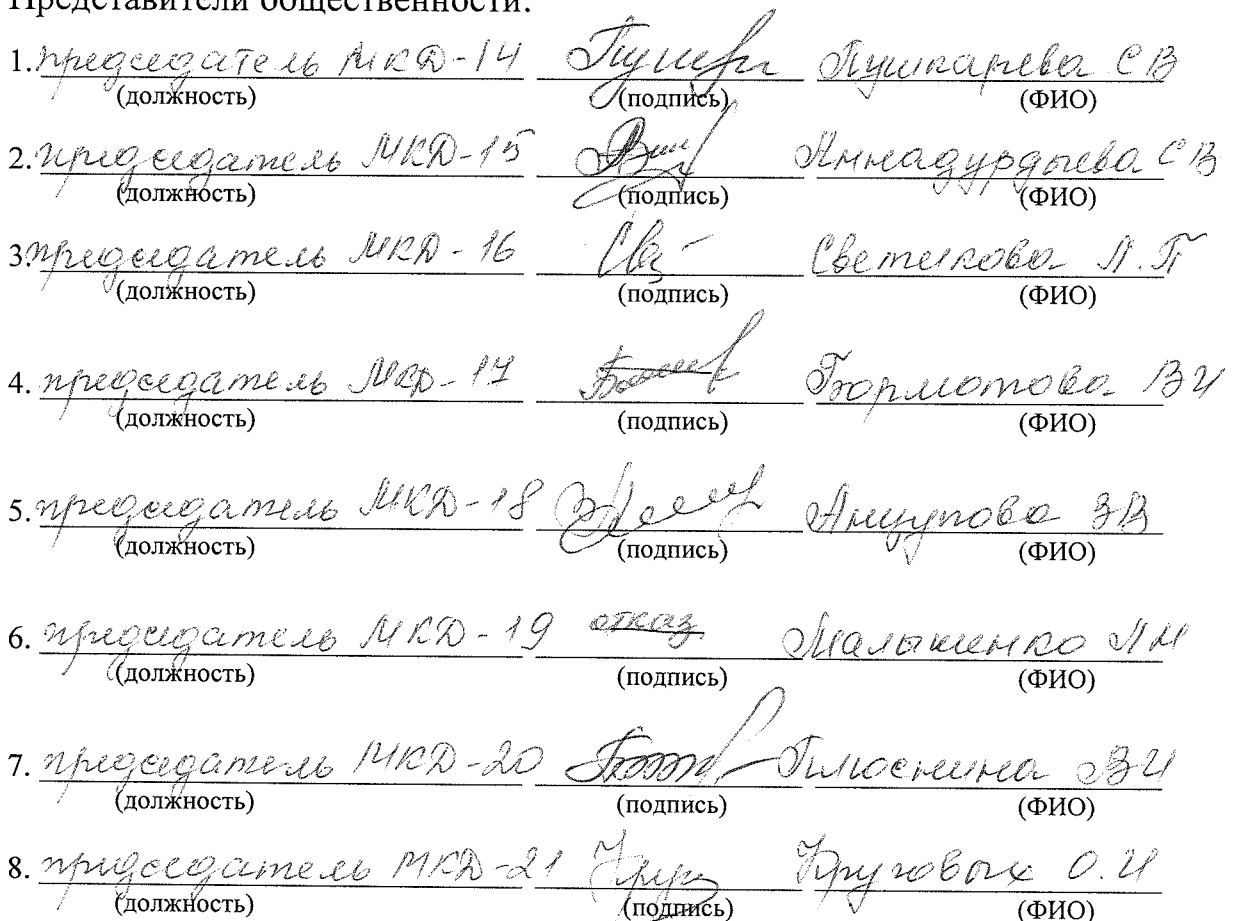 Представители общественности:
1. председатель МКД-14 Пушкарева С В
(должность) (подпись) (ФИО)
2. председатель МКД-15 Аннадурдыева С В
(должность) (подпись) (ФИО)
3. председатель МКД-16 Светикова Л. П
(должность) (подпись) (ФИО)
4. председатель МКД-17 Бормотова В И
(должность) (подпись) (ФИО)
5. председатель МКД-18 Анцупова З В
(должность) (подпись) (ФИО)
6. председатель МКД-19 отказ Малышенко Л Н
(должность) (подпись) (ФИО)
7. председатель МКД-20 Плюснина В И
(должность) (подпись) (ФИО)
8. председатель МКД-21 Круговых О. И
(должность) (подпись) (ФИО)